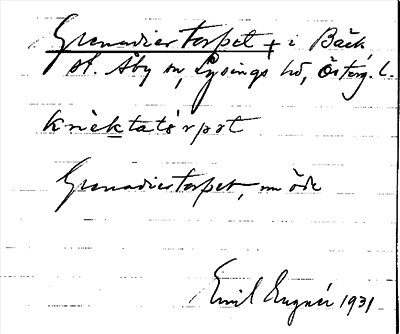 Grenadiertorpet + i Bäck,
St. Åby sn, Lysings hd, Österg. l.
knièktatórpət
Grenadiertorpet, nu öde
Emil Eugnér 1931